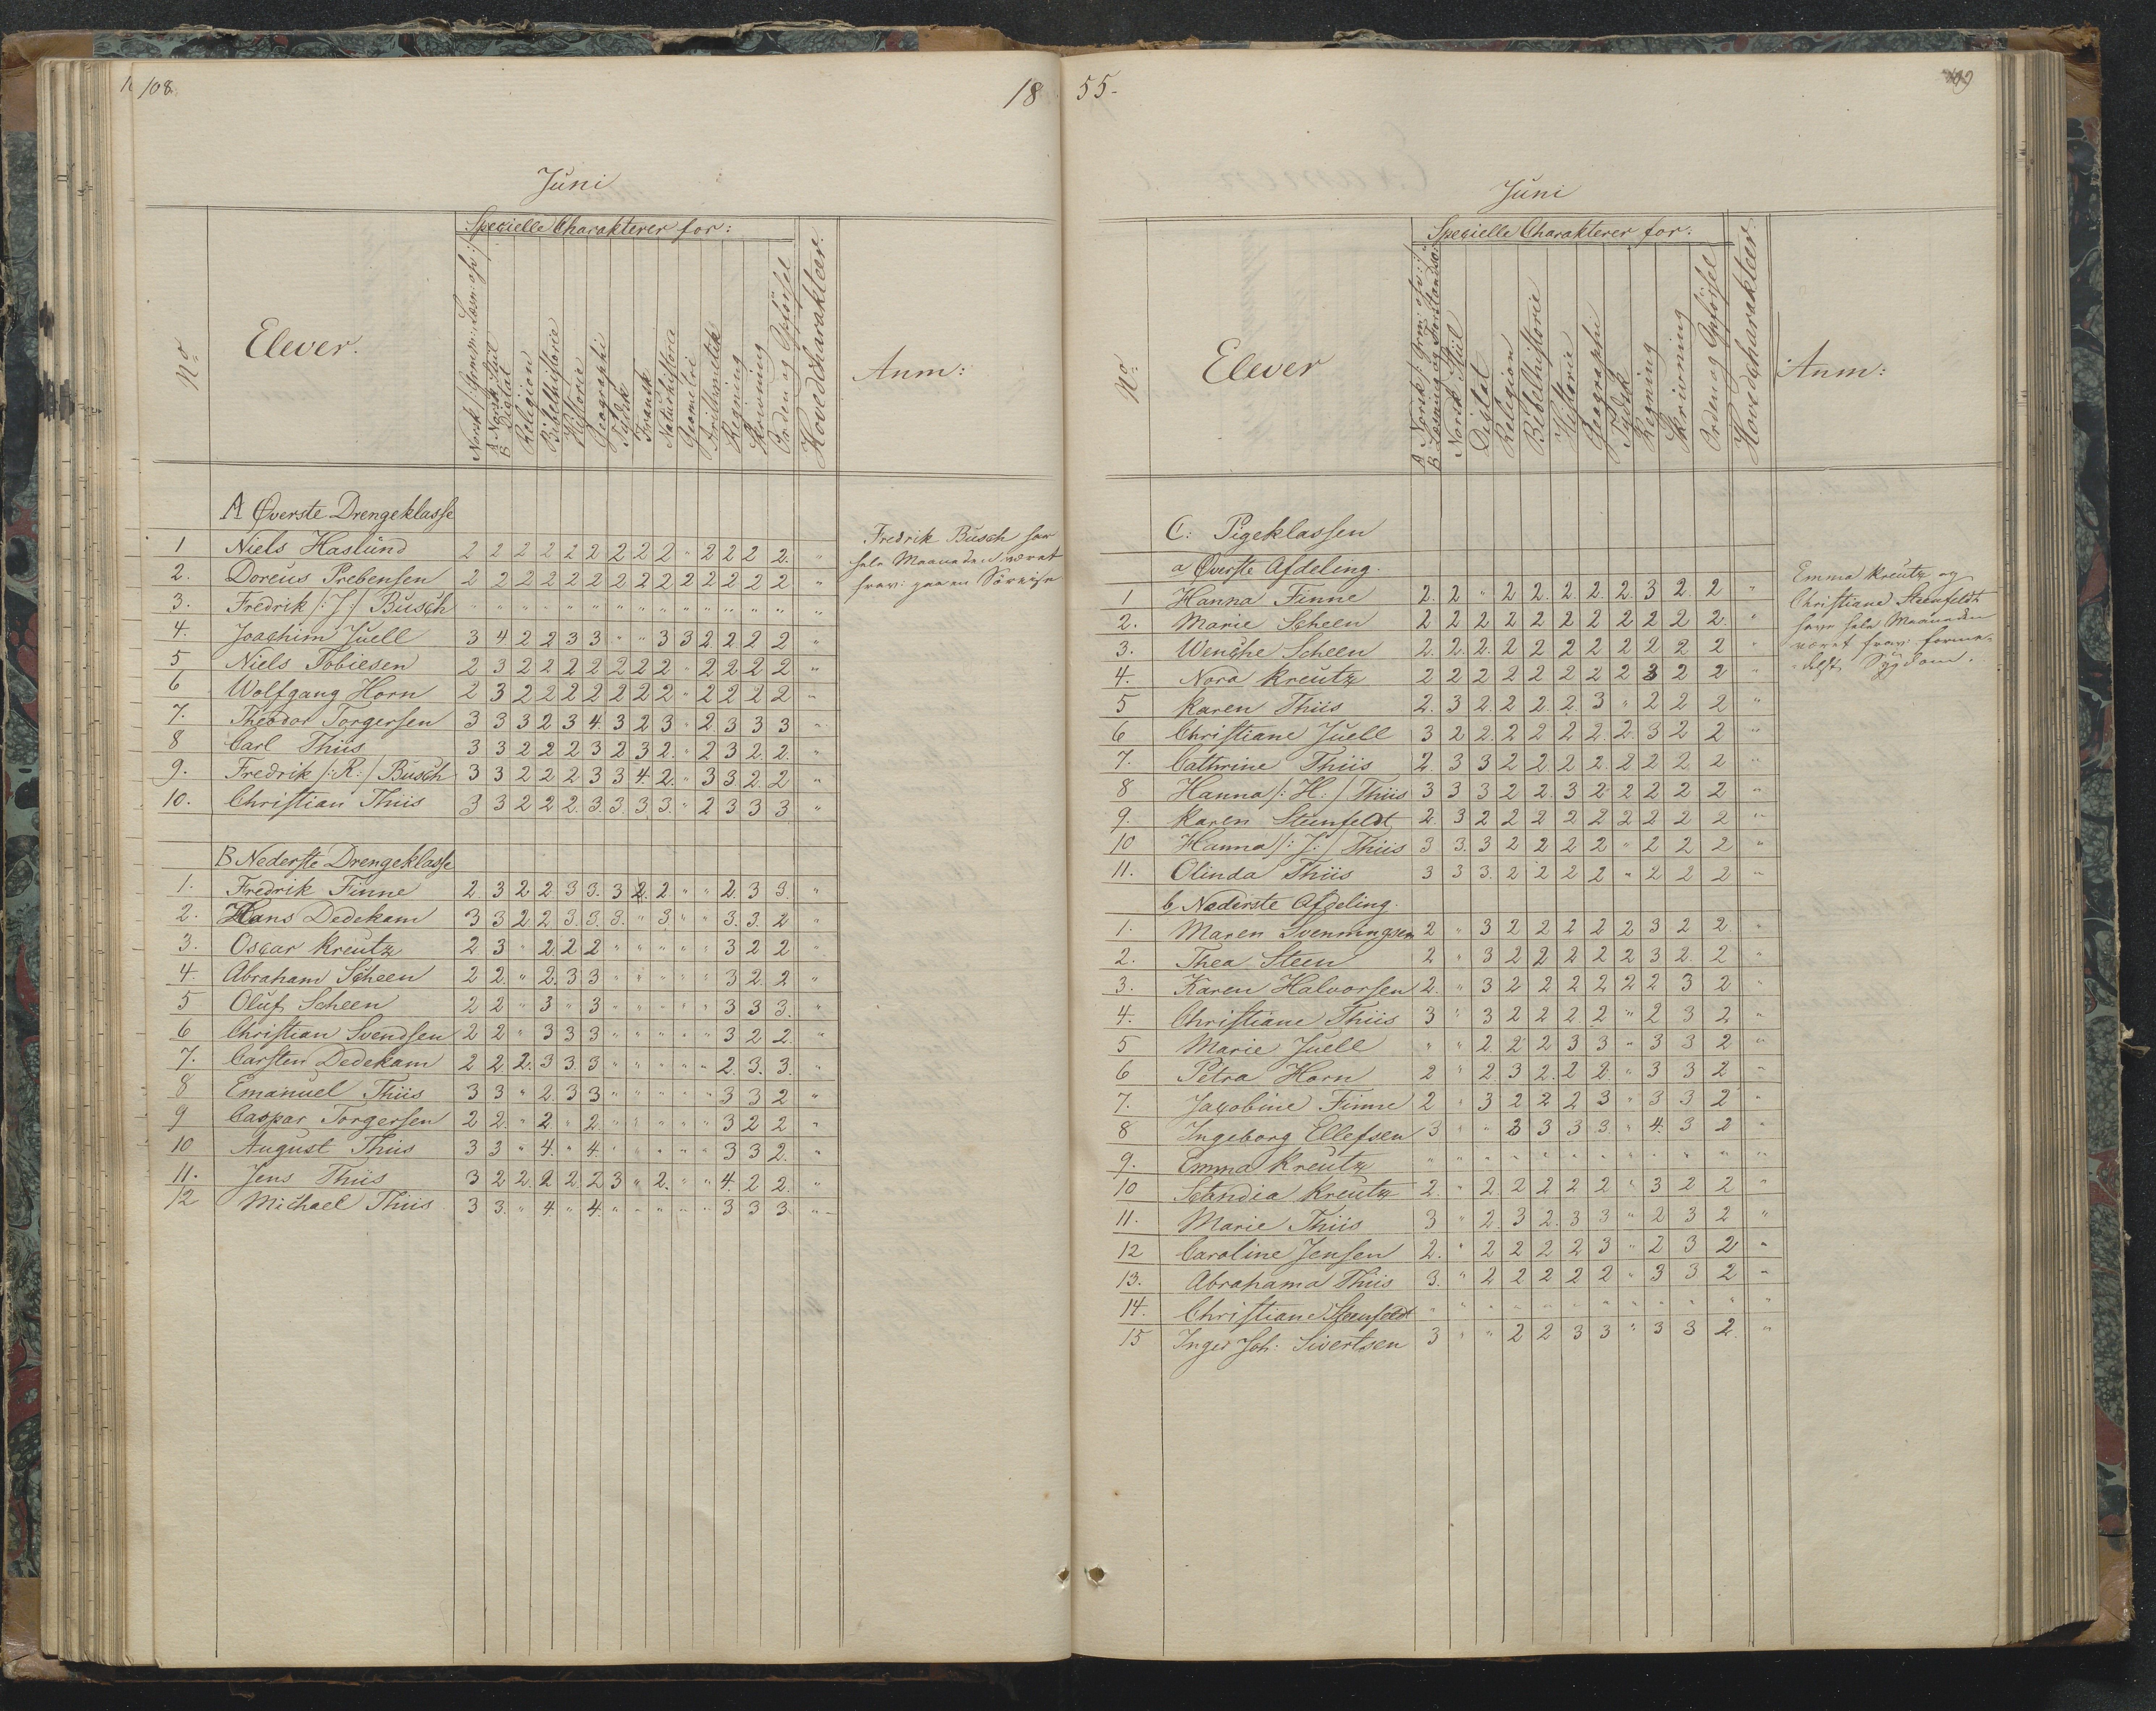 108.
18
Juni
Specielle Charakterer for:
No
Elever.
Norsk /: Gram: Læsn: osv :/
A Norsk Stiil
B Digtat
Religion
Bibelhistorie
Historie
Geographi
Tydsk
Fransk
Naturhistorie
Geometri
Arithmetik
Regning
Skrivning
Orden og Opførsel
Hovedcharakteer.
Anm:
A Øverste Drengeklasse
1 Niels Haslund 2 2 2 2 2 2 2 2 2 " 2 2 2 2. "
2. Doreus Prebensen 2 2 2 2 2 2 2 2 2 2 2 2 2 2 "
3. Fredrik /:J:/ Busch " " " " " " " " " " " " " " "
4. Joachim Juell 3 4 2 2 3 3 " " 3 3 2 2 2 2 "
5 Niels Tobiesen 2 3 2 2 2 2 2 2 2 " 2 2 2 2 "
6 Wolfgang Horn 2 3 2 2 2 2 2 2 2 " 2 2 2 2 "
7. Theodor Torgersen 3 3 3 2 3 4. 3 2 3 " 2 3 3 3 "
8 Carl Thiis 3 3 2 2 2 3 2 3 2. " 2 3 2. 2. "
9. Fredrik /:R:/ Busch 3 3 2 2 2 3 3 4. 2. " 3 3 2. 2 "
10. Christian Thiis 3 3 2 2 2. 3. 3. 3. 3. " 2 3 3 3 "
Fredrik Busch har
hele Maaneden været
frav: paa en Söreise
B Nederste Drengeklasse
1. Fredrik Finne 2. 3 2 2 3 3. 3 2. 2 " " 2. 3 3. "
2. Hans Dedekam 3 3 2 2 3. 3. 3. " 3. " " 3. 3. 2 "
3. Oscar Kreutz 2. 3 " 2 2 2 " " " " " 3 2 2 "
4. Abraham Scheen 2 2. " 2. 3 3 " " " " " 3 2. 2 "
5 Oluf Scheen 2 2 " 3 " 3 " " " " " 3 3 3. "
6 Christian Svendsen 2 2 " 3 3 3 " " " " " 3 2 2. "
7. Carsten Dedekam 2 2. 2. 3 3. 3 " " " " " 2. 3. 3. "
8 Emanuel Thiis 3 3 " 2. 3 3 " " " " " 3 3 2 "
9 Caspar Torgersen 2 2. " 2 " 2 " " " " " 3 2 2 "
10 August Thiis 3 3 " 4. " 4. " " " " " 3 3 2. "
11. Jens Thiis 3 2 2. 2 2 2 3 " 2. " " 4. 2 2. "
12 Michael Thiis 3 3. " 4. " 4. " " " " " 3 3 3. "
55.
109
Juni
Specielle Charakterer for:
No
Elever
A Norsk /: Gram: osv :/
B Læsning og Forstandsöv:
Norsk Stiil
Digtat
Religion
Bibelhistorie
Historie
Geographi
Tydsk
Regning
Skrivning
Orden og Opførsel
Hovedcharakteer
Anm:
C: Pigeklassen
a Øverste Afdeling.
1 Hanna Finne 2. 2 " 2 2. 2. 2. 2. 3 2. 2 "
2. Marie Scheen 2 2 2 2 2 2 2 2 2 2 2. "
3. Wenche Scheen 2. 2. 2. 2 2 2 2 2 2 2 2 "
4. Nora Kreutz 2 2 2 2 2 2 2 2 3 2 2 "
5 Karen Thiis 2. 3 2. 2 2. 2. 3 " 2 2 2 "
6 Christiane Juell 3 2 2. 2 2 2 2. 2. 3 2 2 "
7. Cathrine Thiis 2. 3 3 2 2. 2. 2. 2 2 2 2 "
8 Hanna /:H:/ Thiis 3 3 3 2 2. 3 2 2 2 2 2 "
9. Karen Steenfeldt 2. 3 2 2 2 2 2 2 2 2 2 "
10 Hanna /:J:/ Thiis 3 3. 3 2 2 2 2 " 2 2 2 "
11. Olinda Thiis 3 3 3. 2 2 2 2 " 2 2 2 "
Emma Kreutz og
Christiane Steenfeldt
have hele Maaneden
været frav: forme-
delst Sÿgdom.
b, Nederste Afdeling.
1. Maren Svenningsen 2 " 3 2 2 2 2 2 3 2 2 "
2. Thea Steen 2 " 3 2 2 2 2 2 3 2. 2 "
3. Karen Halvorsen 2. " 3 2 2 2 2 2 2 3 2 "
4. Christiane Thiis 3 " 3 2 2 2 2 " 2 3 2 "
5 Marie Juell " " 2. 2 2 3 3 " 3 3 2 "
6 Petra Horn 2 " 2. 3 2. 2 2. " 3 3 2 "
7. Jacobine Finne 2 " 3 2 2 2 3 " 3 3 2 "
8 Ingeborg Ellefsen 3 " " 3 3 3 3. " 4. 3 2 "
9. Emma Kreutz " " " " " " " " " " " "
10 Standia Kreutz 2. " 2. 2 2 2 2 " 3 2 2 "
11. Marie Thiis 3 " 2. 3 2. 3 3 " 2 3 2 "
12 Caroline Jensen 2. " 2 2 2 2 3 " 2 3 2 "
13. Abrahama Thiis 3. " 2 2 2 2 2 " 3 3 2 "
14. Christiane Steenfeldt " " " " " " " " " " " "
15 Inger Joh: Sivertsen 3 " " 2 2 3 3 " 3 3 2. "